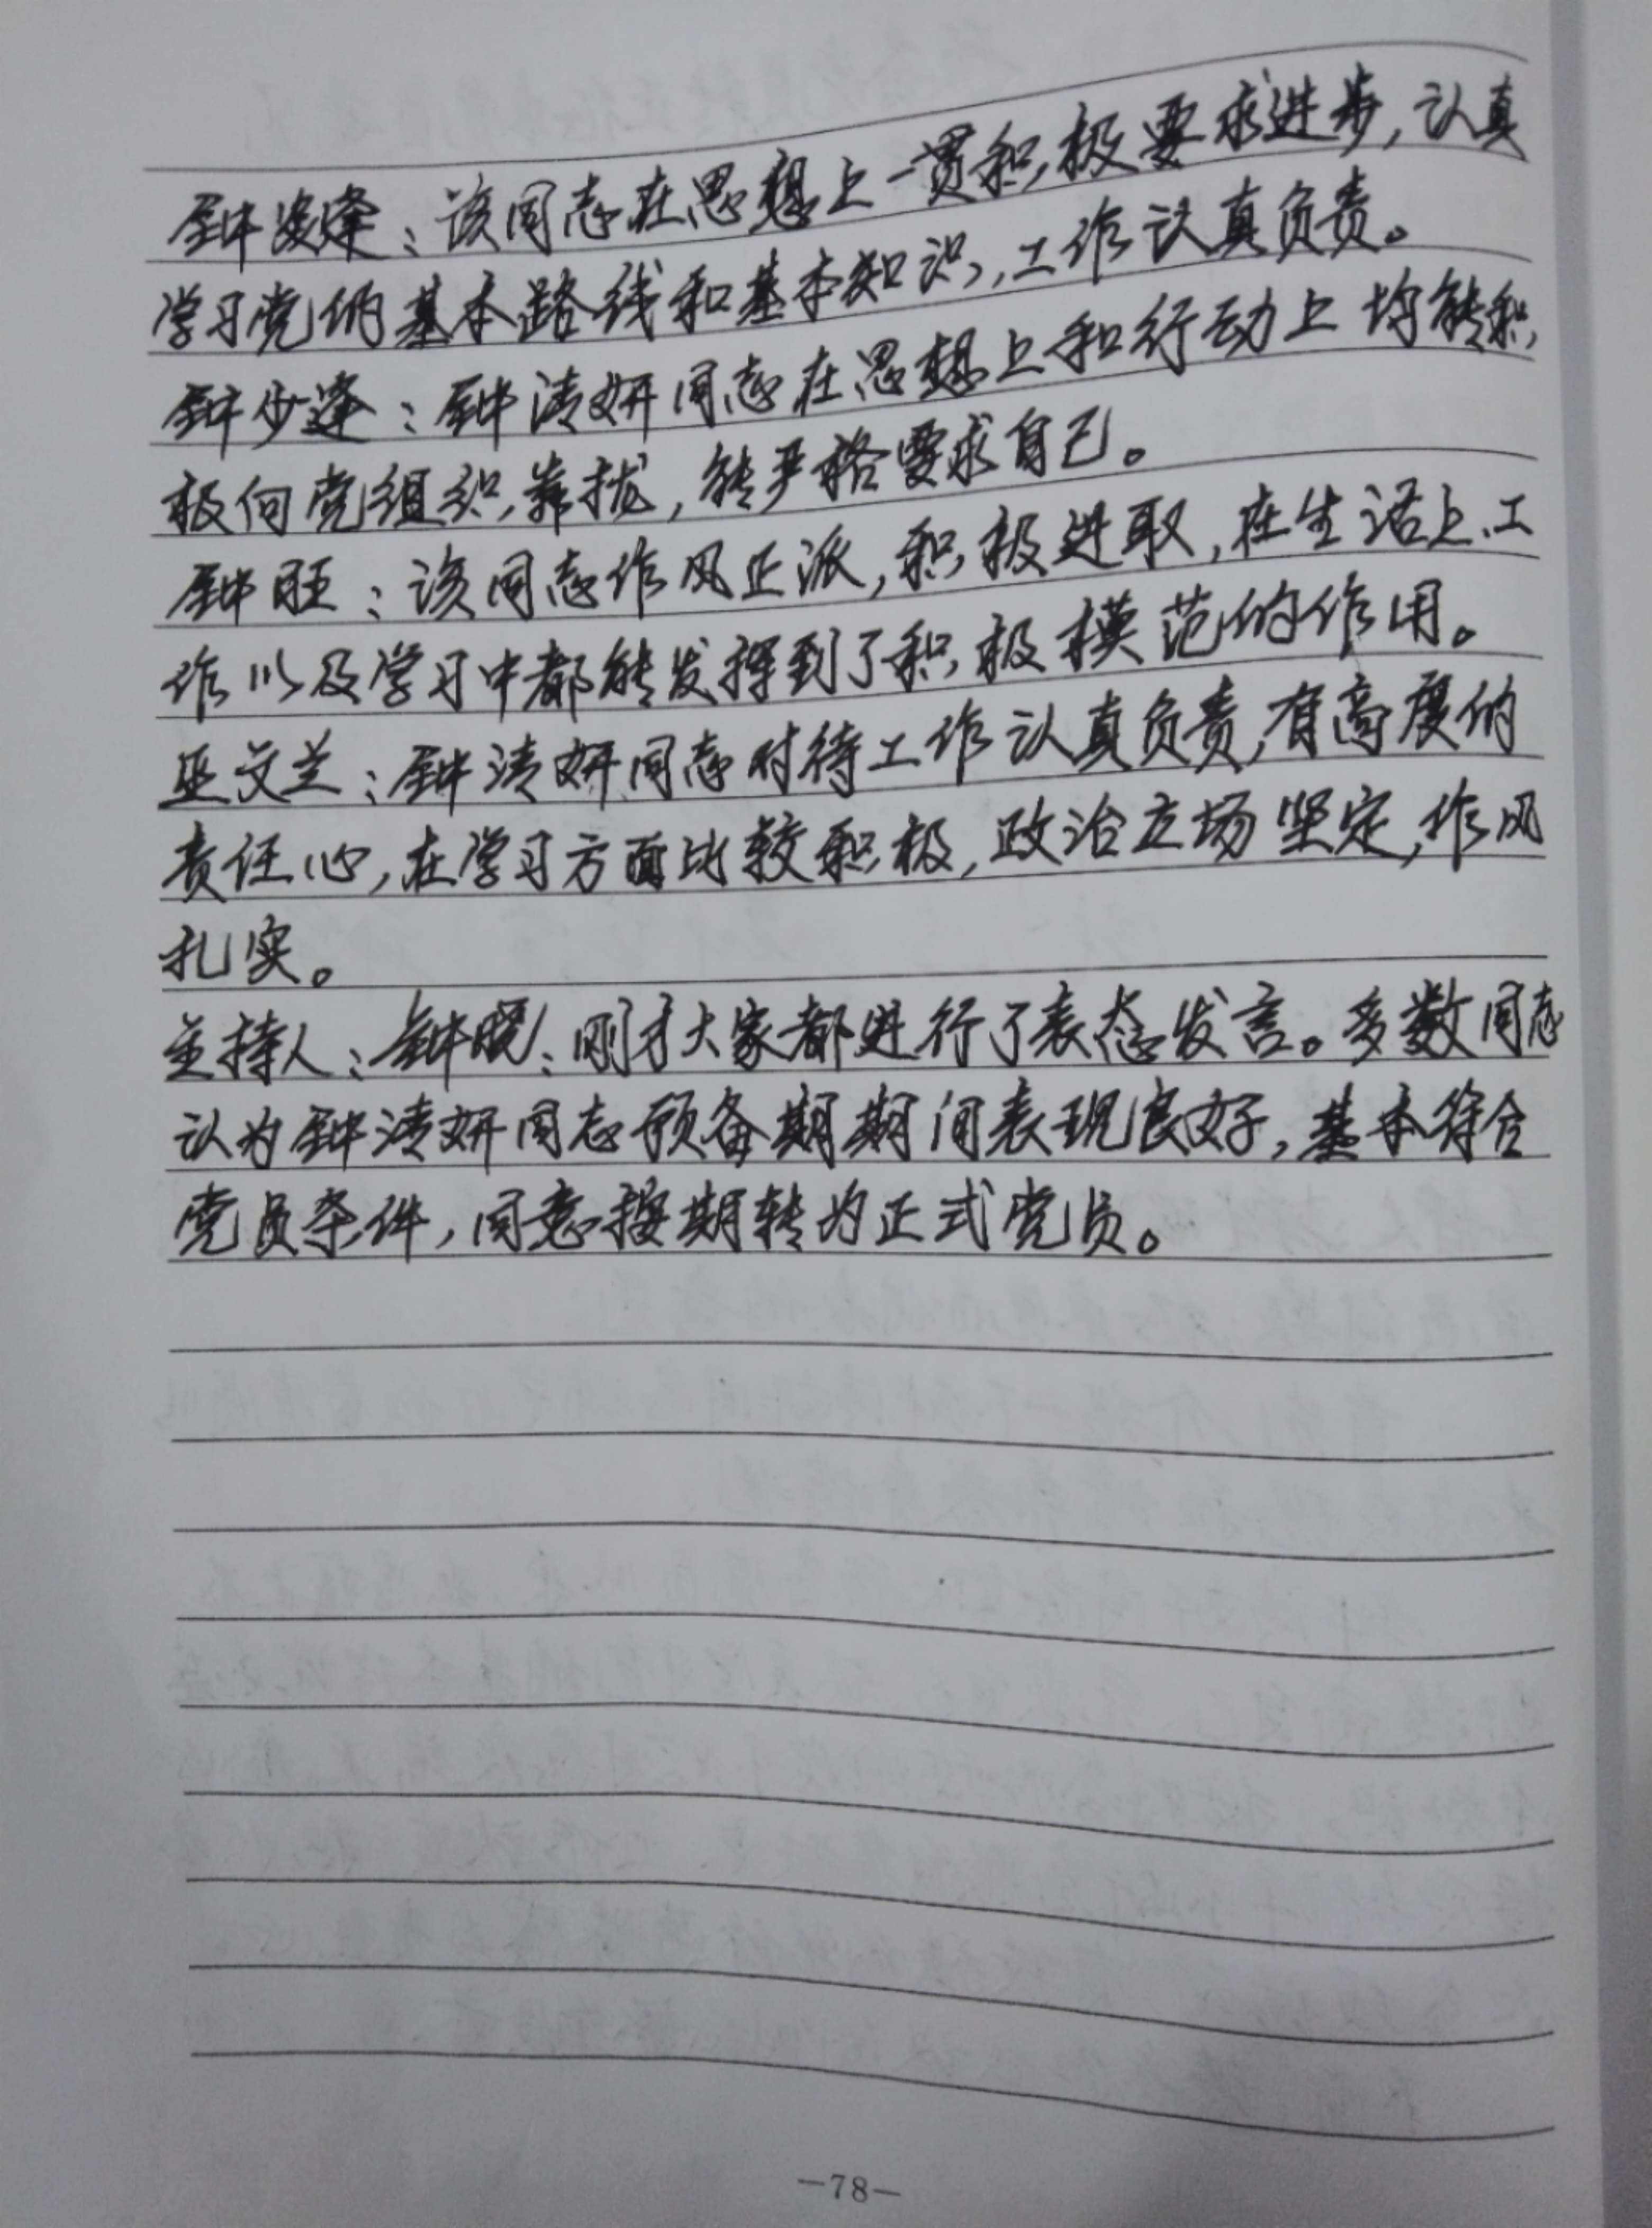 钟凌峰：该同志在思想上一贯积极要求进步，认真
学习党的基本路线和基本知识，工作认真负责。
钟少逢：钟清妍同志在思想上和行动上均能积
极向党组织靠拢，能严格要求自己。
钟旺：该同志作风正派，积极进取，在生活上、工
作以及学习中都能发挥到了积极模范的作用。
巫文兰：钟清妍同志对待工作认真负责，有高度的
责任心，在学习方面比较积极，政治立场坚定，作风
扎实。
主持人：钟晓：刚才大家都进行了表态发言。多数同志
认为钟清妍同志预备期期间表现良好，基本符合
党员条件，同意按期转为正式党员。
—78—